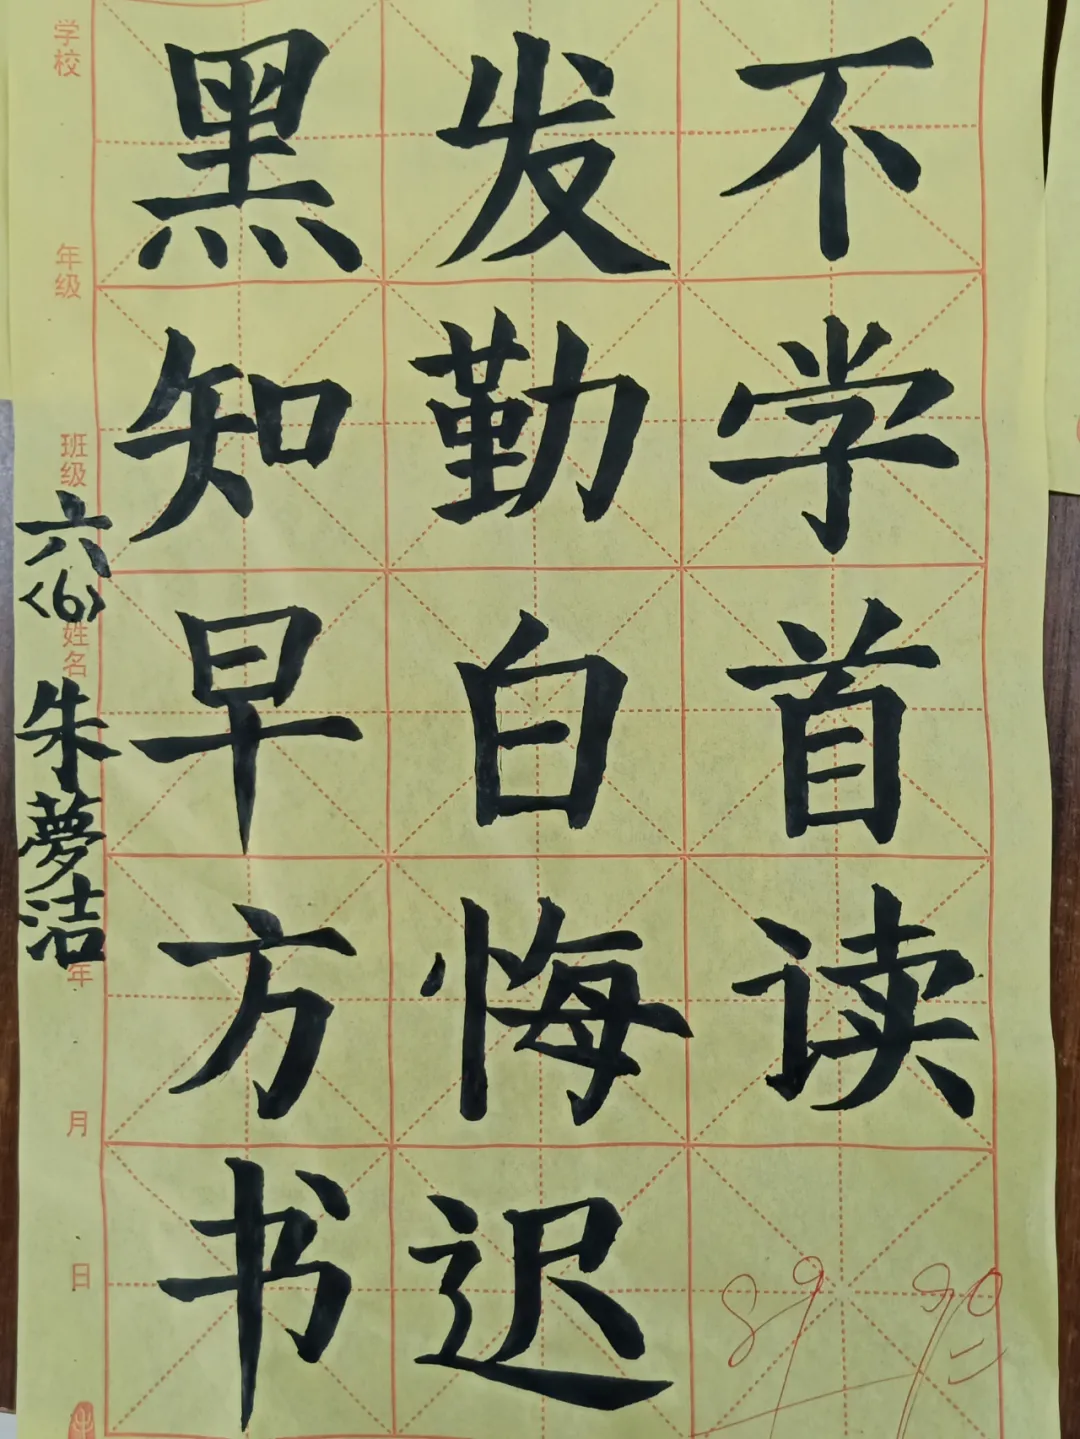 黑发不
知勤学
早白首
方悔读
书迟
学校
年级
班级
六<6>
姓名
朱夢洁
年
月
日
89
90